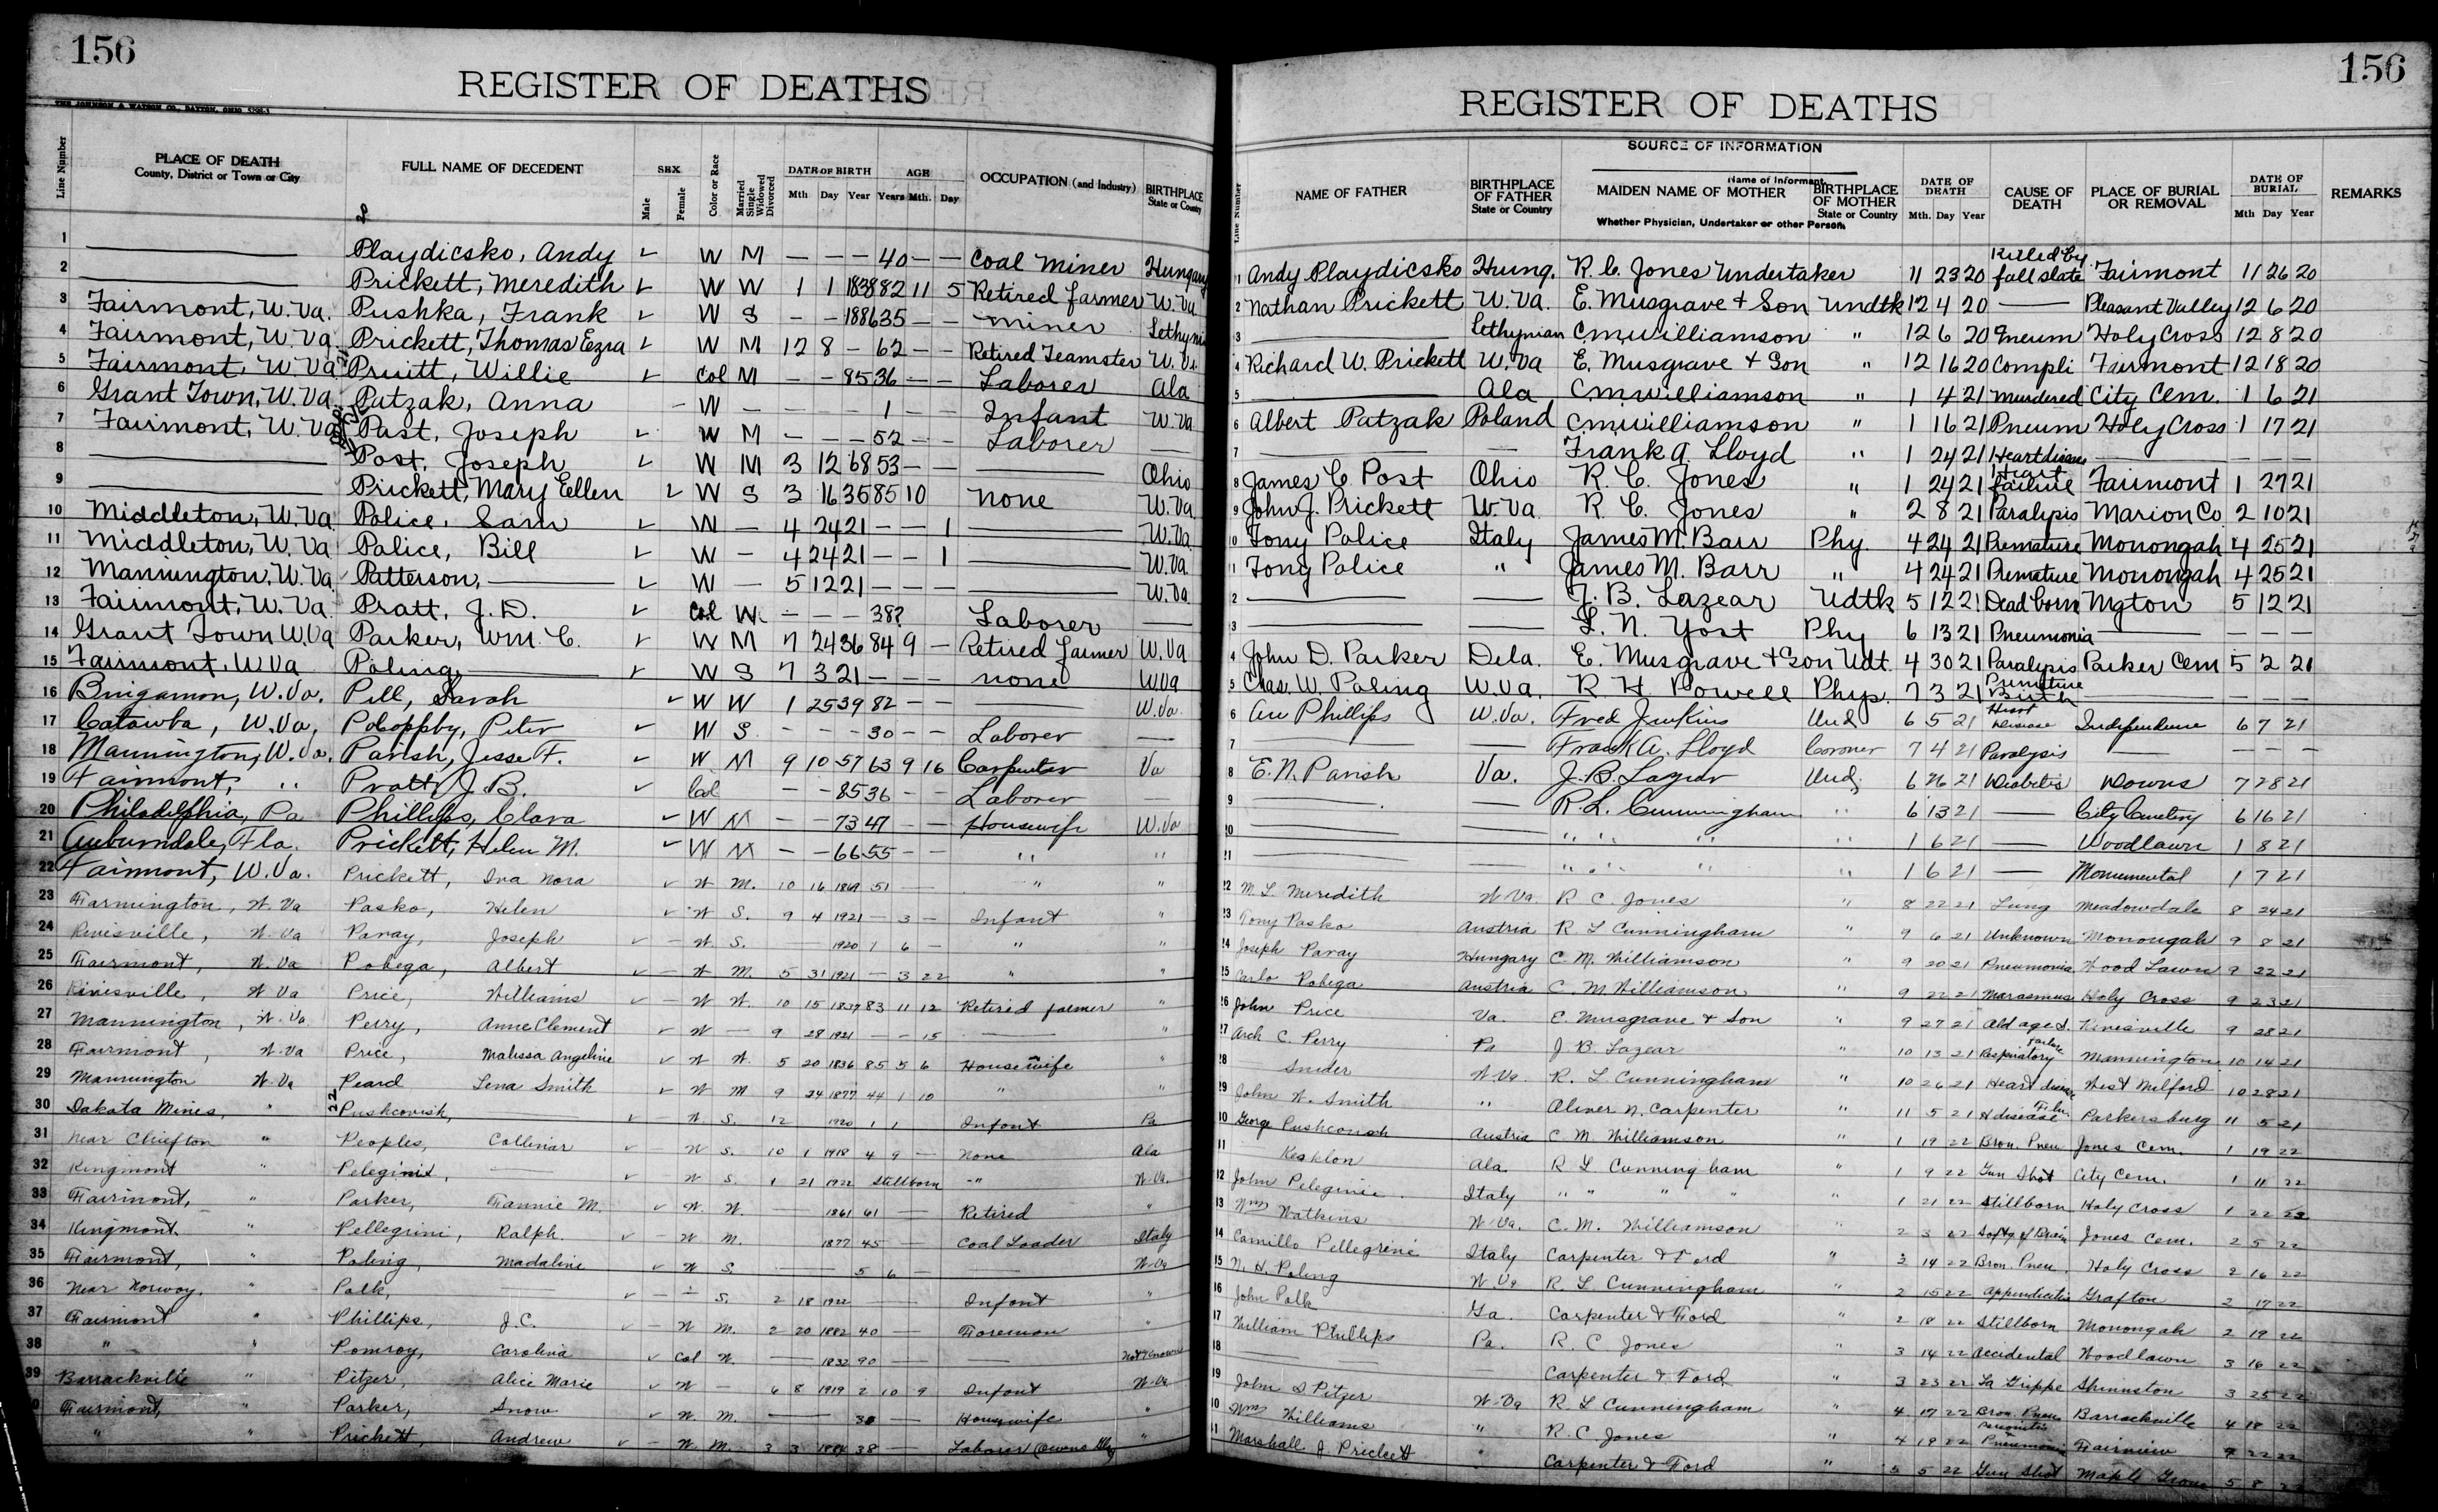 156
REGISTER OF DEATHS
THE JOHNSON & WATSON CO., DAYTON, OHIO
Line Number
PLACE OF DEATH
County, District or Town or City
FULL NAME OF DECEDENT
SEX
Male
Female
Color or Race
Married Single Widowed Divorced
DATE OF BIRTH
Mth Day Year
AGE
Years Mth. Day
OCCUPATION (and Industry)
BIRTHPLACE
State or County
20
1 — Playdicsko, Andy ✓ W M — — — 40 — — Coal Miner Hungary
2 — Prickett, Meredith ✓ W W 1 1 1838 82 11 5 Retired farmer W. Va
3 Fairmont, W. Va. Pushka, Frank ✓ W S — — 1886 35 — — Miner
4 Fairmont, W. Va. Prickett, Thomas Ezra ✓ W M 12 8 — 62 — — Retired Teamster W. Va
5 Fairmont, W. Va 21 Pruitt, Willie ✓ Col M — — 85 36 — — Laborer Ala
6 Grant Town, W. Va. Patzak, Anna — W — — — — 1 — — Infant W. Va
7 Fairmont, W. Va Past, Joseph ✓ W M — — — 52 — — Laborer —
8 — Post, Joseph ✓ W M 3 12 68 53 — — — Ohio
9 — Prickett, Mary Eellen ✓ W S 3 16 35 85 10 none W. Va.
10 Middleton, W. Va. Police, Sam ✓ W — 4 24 21 — — 1 — W. Va.
11 Middleton, W. Va Police, Bill ✓ W — 4 24 21 — — 1 — W. Va.
12 Mannington, W. Va Patterson, — ✓ W — 5 12 21 — — — — W. Va.
13 Fairmont, W. Va Pratt, J. D. ✓ Col W. — — — 38? Laborer —
14 Grant Town W. Va Parker, Wm. C. ✓ W M 7 24 36 84 9 — Retired farmer W. Va
15 Fairmont, W Va Poling, — ✓ W S 7 3 21 — — — none W Va
16 Bingamon, W. Va. Pill, Sarah ✓ W W 1 25 39 82 — — — W. Va.
17 Catawba, W. Va, Poloppby, Peter ✓ W S. — — — 30 — — Laborer —
18 Mannington, W. Va. Parish, Jesse F. ✓ W M 9 10 57 63 9 16 Carpenter Va
19 Fairmont, " Pratt, J. B. ✓ Col — — 85 36 — — Laborer —
20 Philadelphia, Pa Phillips, Clara ✓ W M — — 73 47 — — Housewife W. Va
21 Auburndale, Fla. Prickett, Helen M. ✓ W M — — 66 55 — — " "
22 Fairmont, W. Va. Prickett, Iva Nora ✓ W M. 10 16 1869 51 — " "
23 Farmington, W. Va Pasko, Helen ✓ W S. 9 4 1921 — 3 — Infant "
24 Rivesville, W. Va Paray, Joseph ✓ — W. S. 1920 1 6 — " "
25 Fairmont, W. Va Pobega, Albert ✓ — W M. 5 31 1921 — 3 22 " "
26 Rivesville, W Va Price, Williams ✓ — W W. 10 15 1837 83 11 12 Retired farmer "
27 Mannington, W. Va Perry, Anne Clement ✓ W — 9 28 1921 — — 15 — "
28 Fairmont, W. Va Price, Malissa Angeline ✓ W W. 5 20 1836 85 5 6 Housewife "
29 Mannington W. Va Peard Lena Smith ✓ W M 9 24 1877 44 1 10 " "
30 Dakota Mines, " 22 Pushcovish, — ✓ W. S. 12 1920 1 1 Infant Pa
31 Near Chiefton " Peoples, ✓ — W S. 10 1 1918 4 9 — None Ala
32 Kingmont " Peleginie, — ✓ W S. 1 21 1922 Stillborn -" W. Va.
33 Fairmont, " Parker, Fannie M. ✓ W. W. — 1861 61 — Retired "
34 Kingmont. " Pellegrini, Ralph. ✓ — W M. 1877 45 — Coal Loader Italy
35 Fairmont, " Poling, Madaline ✓ W S. — — 5 6 — W. Va
36 Near Norway. " Palk, — ✓ — — S. 2 18 1922 — Infant "
37 Fairmont " Phillips, J. C. ✓ — W M. 2 20 1882 40 — Foreman "
38 " " Pomroy, Carolina ✓ Col W. — 1832 90 — — Not Known
39 Barrackville " Pitzer, Alice Marie ✓ W — 6 8 1919 2 10 9 Infant W. Va
0 Fairmont, " Parker, Snow ✓ W. M. — 30 — Housewife "
" " Prickett, Andrew ✓ — W. M. 3 3 1884 38 — Laborer "
156
REGISTER OF DEATHS
Line Number
NAME OF FATHER
BIRTHPLACE OF FATHER
State or Country
SOURCE OF INFORMATION
Name of Informant
MAIDEN NAME OF MOTHER
BIRTHPLACE OF MOTHER
State or Country
Whether Physician, Undertaker or other Person
DATE OF DEATH
Mth. Day Year
CAUSE OF DEATH
PLACE OF BURIAL OR REMOVAL
DATE OF BURIAL
Mth Day Year
REMARKS
1 Andy Playdicsko Hung. R. C. Jones Undertaker 11 23 20 Killed by fall slate Fairmont 11 26 20
2 Nathan Prickett W. Va. E. Musgrave + Son Undtk 12 4 20 — Pleasant Valley 12 6 20
3 — Lethynian C M Williamson " 12 6 20 Pneum Holy Cross 12 8 20
4 Richard W. Prickett W. Va E. Musgrave + Son " 12 16 20 Compli Fairmont 12 18 20
5 — Ala C M Williamson " 1 4 21 Murdered City Cem. 1 6 21
6 Albert Patzak Poland C M Williamson " 1 16 21 Pneum Holy Cross 1 17 21
7 — — Frank A. Lloyd " 1 24 21 Heart disease — — — —
8 James C Post Ohio R. C. Jones " 1 24 21 Heart failure Fairmont 1 27 21
9 John J. Prickett W. Va. R. C. Jones " 2 8 21 Paralysis Marion Co 2 10 21
10 Tony Police Italy James M. Barr Phy. 4 24 21 Premature Monongah 4 25 21
11 Tony Police " James M. Barr " 4 24 21 Premature Monongah 4 25 21
2 — — J. B. Lazear Udtk 5 12 21 Dead born Mgton 5 12 21
3 — — L. N. Yost Phy 6 13 21 Pneumonia — — — —
4 John D. Parker Dela. E. Musgrave + Son Udt. 4 30 21 Paralysis Parker Cem 5 2 21
5 Chas. W. Poling W. Va. R H. Powell Phys. 7 3 21 Premature Birth — — — —
6 Phillips W. Va. Fred Jenkins Und 6 5 21 Heart Disease Independence 6 7 21
7 — — Frank A. Lloyd Coroner 7 4 21 Paralysis — — — —
8 E. N. Parish Va. J. B. Lazear Und 6 26 21 Diabetis Downs 7 28 21
9 — — R. L. Cunningham " 6 13 21 — City Cemetery 6 16 21
20 — — " " " " 1 6 21 — Woodlawn 1 8 21
21 — — " " " " 1 6 21 — Monumental 1 7 21
22 M. L. Meredith W. Va. R C. Jones " 8 22 21 Lung Meadowdale 8 24 21
23 Tony Pasko Austria R L Cunningham " 9 6 21 Unknown Monongah 9 8 21
24 Joseph Paray Hungary C. M. Williamson " 9 20 21 Pneumonia Wood Lawn 9 22 21
25 Carlo Pobega Austria C. M. Williamson " 9 22 21 Marasmus Holy Cross 9 23 21
26 John Price Va. E. Musgrave & Son " 9 27 21 Old age Rivesville 9 28 21
27 Arch C. Perry Pa J B. Lazear " 10 13 21 Respiratory Failure Mannington 10 14 21
28 Snider W. Va. R. L Cunningham " 10 26 21 Heart disease West Milford 10 28 21
29 John W. Smith " Oliver N. Carpenter " 11 5 21 H disease Parkersburg 11 5 21
30 George Pushconsh Austria C M. Williamson " 1 19 22 Bron. Pneu Jones Cem. 1 19 22
31 Kesklon Ala. R L Cunningham " 1 9 22 Gun Shot City Cem. 1 11 22
32 John Peleginie. Italy " " " " " 1 21 22 Stillborn Holy Cross 1 22 22
33 Wm Watkins W. Va. C. M. Williamson 2 3 22 Softg of Brain Jones Cem. 2 5 22
34 Camillo Pellegrini Italy Carpenter & Ford " 3 14 22 Bron. Pneu. Holy Cross 2 16 22
35 N. H. Poling W. Va R. L Cunningham " 2 15 22 Appendicitis Grafton 2 17 22
36 John Palk Ga. Carpenter & Ford " 2 18 22 Stillborn Monongah 2 19 22
37 William Phillips Pa. R. C Jones " 3 14 22 Accidental Woodlawn 3 16 22
38 — Carpenter & Ford " 3 23 22 La Grippe Shinnston 3 25 22
39 John D Pitzer W. Va R. L Cunningham " 4 17 22 Bron. Pneu Barrackville 4 18 22
40 Wm Williams " R. C. Jones " 4 19 22 Pneumonia Fairview 22 22
41 Marshall J. Prickett " Carpenter & Ford " 5 5 22 Gun Shot Maple Grove 5 8 22